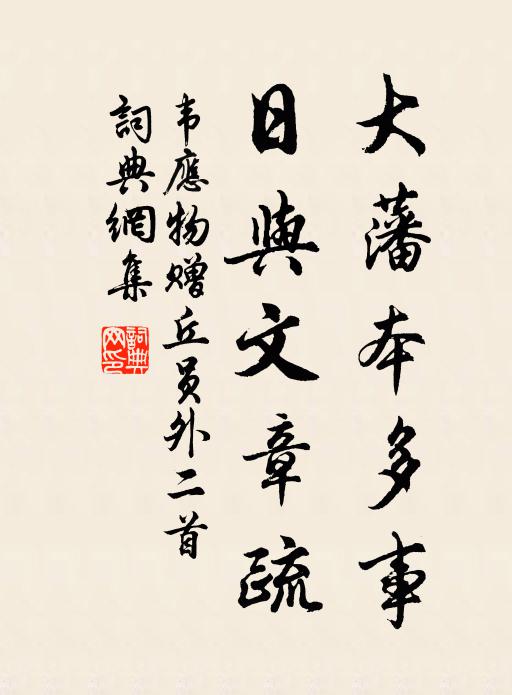 大藩本多事
日與文章疏
韦應物赠丘员外二首
詞典網集
詞典
网印